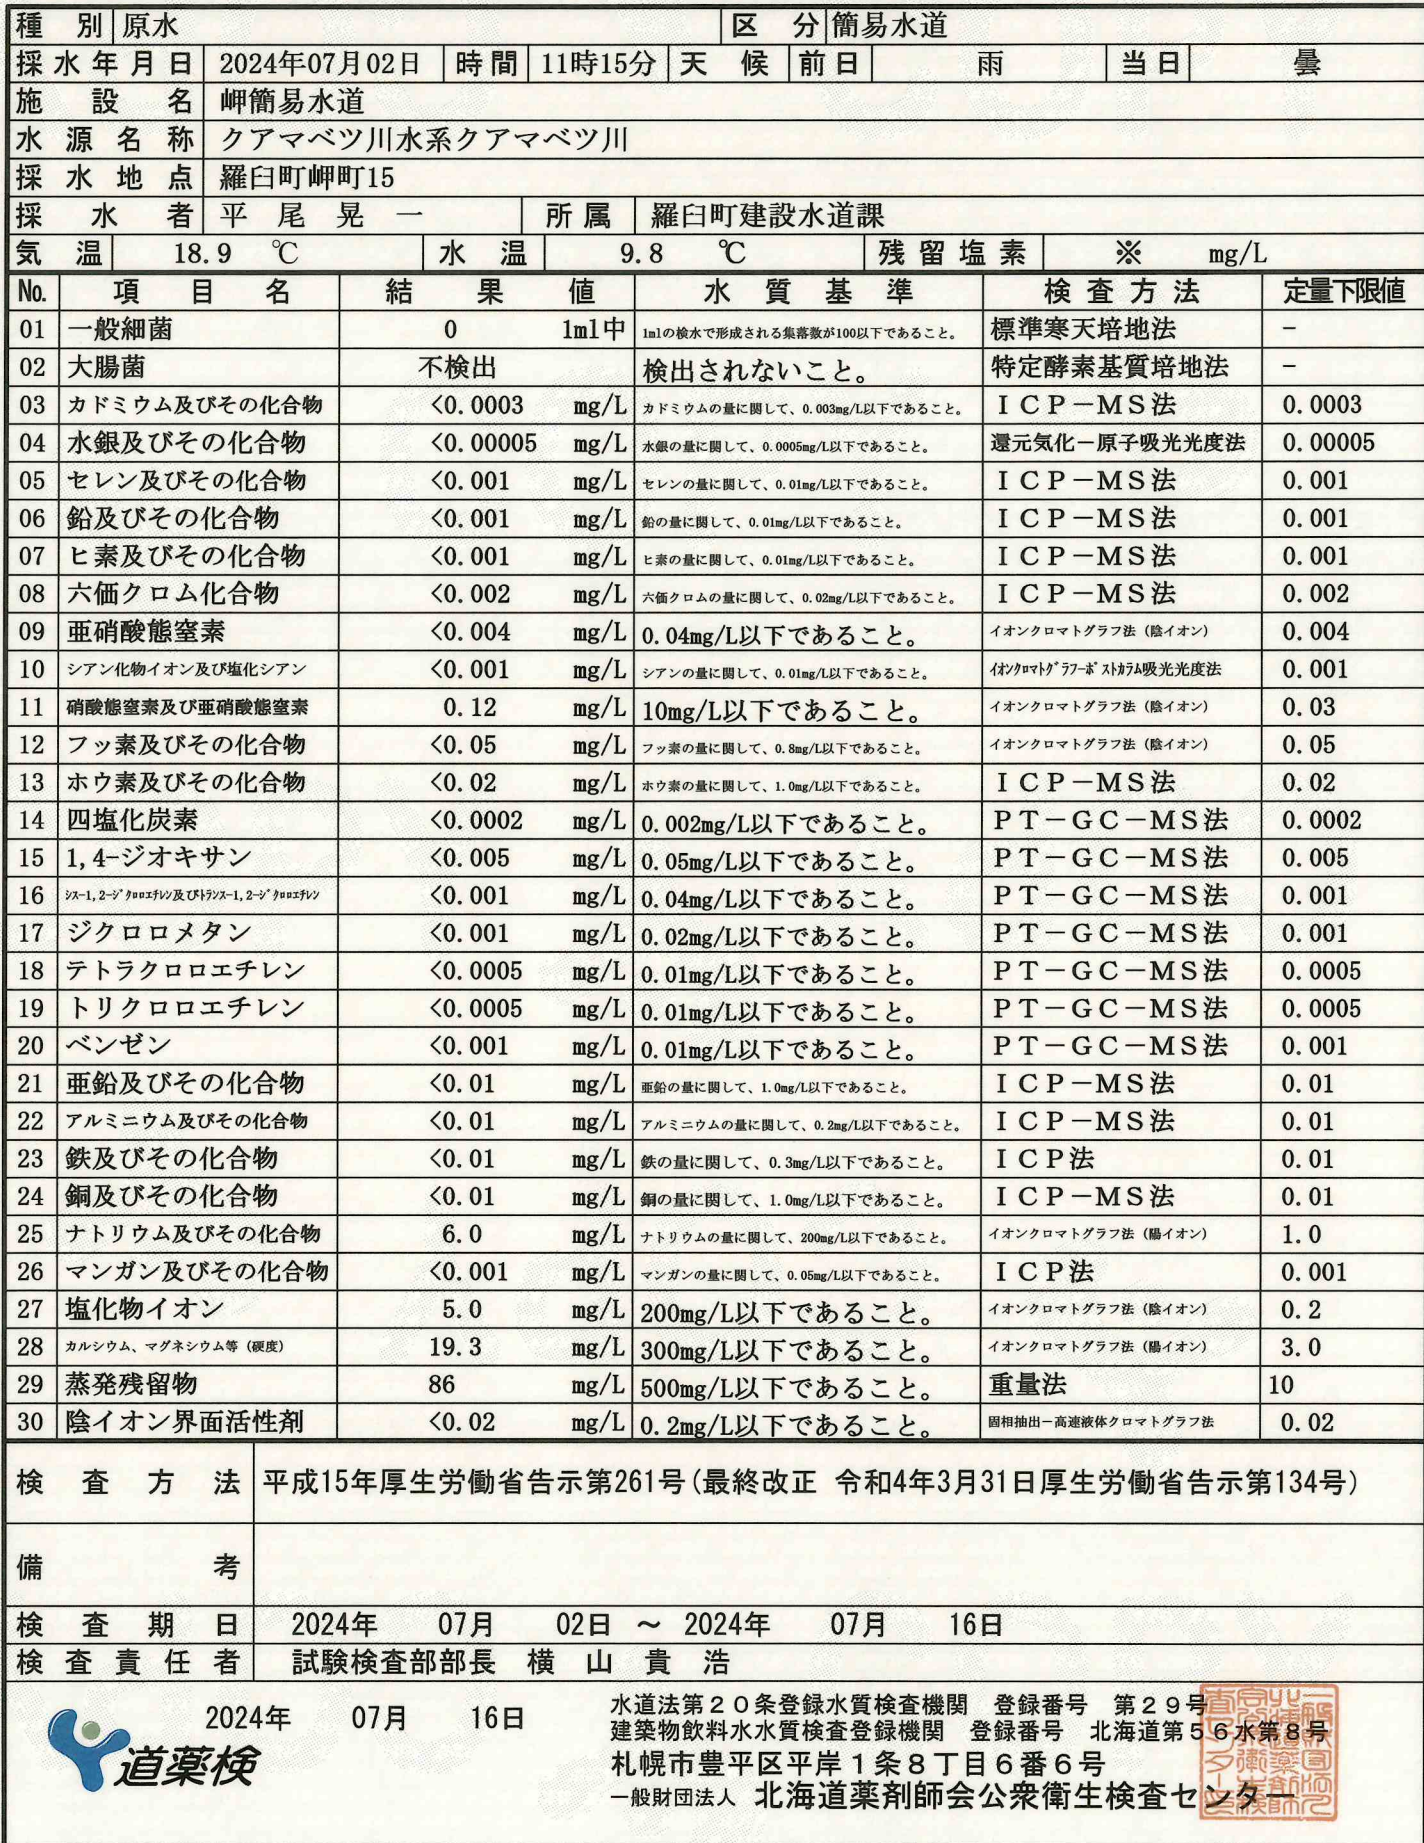 種別 原水 区分 簡易水道
採水年月日 2024年07月02日 時間 11時15分 天候 前日 雨 当日 曇
施設名 岬簡易水道
水源名称 クアマベツ川水系クアマベツ川
採水地点 羅臼町岬町15
採水者 平尾晃一 所属 羅臼町建設水道課
気温 18.9 ℃ 水温 9.8 ℃ 残留塩素 ※ mg/L
No. 項目名 結果値 水質基準 検査方法 定量下限値
01 一般細菌 0 1ml中 1mlの検水で形成される集落数が100以下であること。 標準寒天培地法 −
02 大腸菌 不検出 検出されないこと。 特定酵素基質培地法 −
03 カドミウム及びその化合物 <0.0003 mg/L カドミウムの量に関して、0.003mg/L以下であること。 ICP−MS法 0.0003
04 水銀及びその化合物 <0.00005 mg/L 水銀の量に関して、0.0005mg/L以下であること。 還元気化−原子吸光光度法 0.00005
05 セレン及びその化合物 <0.001 mg/L セレンの量に関して、0.01mg/L以下であること。 ICP−MS法 0.001
06 鉛及びその化合物 <0.001 mg/L 鉛の量に関して、0.01mg/L以下であること。 ICP−MS法 0.001
07 ヒ素及びその化合物 <0.001 mg/L ヒ素の量に関して、0.01mg/L以下であること。 ICP−MS法 0.001
08 六価クロム化合物 <0.002 mg/L 六価クロムの量に関して、0.02mg/L以下であること。 ICP−MS法 0.002
09 亜硝酸態窒素 <0.004 mg/L 0.04mg/L以下であること。 イオンクロマトグラフ法（陰イオン） 0.004
10 シアン化物イオン及び塩化シアン <0.001 mg/L シアンの量に関して、0.01mg/L以下であること。 ｲｵﾝｸﾛﾏﾄｸﾞﾗﾌｰﾎﾟｽﾄｶﾗﾑ吸光光度法 0.001
11 硝酸態窒素及び亜硝酸態窒素 0.12 mg/L 10mg/L以下であること。 イオンクロマトグラフ法（陰イオン） 0.03
12 フッ素及びその化合物 <0.05 mg/L フッ素の量に関して、0.8mg/L以下であること。 イオンクロマトグラフ法（陰イオン） 0.05
13 ホウ素及びその化合物 <0.02 mg/L ホウ素の量に関して、1.0mg/L以下であること。 ICP−MS法 0.02
14 四塩化炭素 <0.0002 mg/L 0.002mg/L以下であること。 PT−GC−MS法 0.0002
15 1,4-ジオキサン <0.005 mg/L 0.05mg/L以下であること。 PT−GC−MS法 0.005
16 ｼｽ-1,2-ｼﾞｸﾛﾛｴﾁﾚﾝ及びﾄﾗﾝｽ-1,2-ｼﾞｸﾛﾛｴﾁﾚﾝ <0.001 mg/L 0.04mg/L以下であること。 PT−GC−MS法 0.001
17 ジクロロメタン <0.001 mg/L 0.02mg/L以下であること。 PT−GC−MS法 0.001
18 テトラクロロエチレン <0.0005 mg/L 0.01mg/L以下であること。 PT−GC−MS法 0.0005
19 トリクロロエチレン <0.0005 mg/L 0.01mg/L以下であること。 PT−GC−MS法 0.0005
20 ベンゼン <0.001 mg/L 0.01mg/L以下であること。 PT−GC−MS法 0.001
21 亜鉛及びその化合物 <0.01 mg/L 亜鉛の量に関して、1.0mg/L以下であること。 ICP−MS法 0.01
22 アルミニウム及びその化合物 <0.01 mg/L アルミニウムの量に関して、0.2mg/L以下であること。 ICP−MS法 0.01
23 鉄及びその化合物 <0.01 mg/L 鉄の量に関して、0.3mg/L以下であること。 ICP法 0.01
24 銅及びその化合物 <0.01 mg/L 銅の量に関して、1.0mg/L以下であること。 ICP−MS法 0.01
25 ナトリウム及びその化合物 6.0 mg/L ナトリウムの量に関して、200mg/L以下であること。 イオンクロマトグラフ法（陽イオン） 1.0
26 マンガン及びその化合物 <0.001 mg/L マンガンの量に関して、0.05mg/L以下であること。 ICP法 0.001
27 塩化物イオン 5.0 mg/L 200mg/L以下であること。 イオンクロマトグラフ法（陰イオン） 0.2
28 カルシウム、マグネシウム等（硬度） 19.3 mg/L 300mg/L以下であること。 イオンクロマトグラフ法（陽イオン） 3.0
29 蒸発残留物 86 mg/L 500mg/L以下であること。 重量法 10
30 陰イオン界面活性剤 <0.02 mg/L 0.2mg/L以下であること。 固相抽出−高速液体クロマトグラフ法 0.02
検査方法 平成15年厚生労働省告示第261号(最終改正 令和4年3月31日厚生労働省告示第134号)
備考
検査期日 2024年 07月 02日 ～ 2024年 07月 16日
検査責任者 試験検査部部長 横山貴浩
2024年 07月 16日
道薬検
水道法第20条登録水質検査機関 登録番号 第29号
建築物飲料水水質検査登録機関 登録番号 北海道第56水第8号
札幌市豊平区平岸1条8丁目6番6号
一般財団法人 北海道薬剤師会公衆衛生検査センター